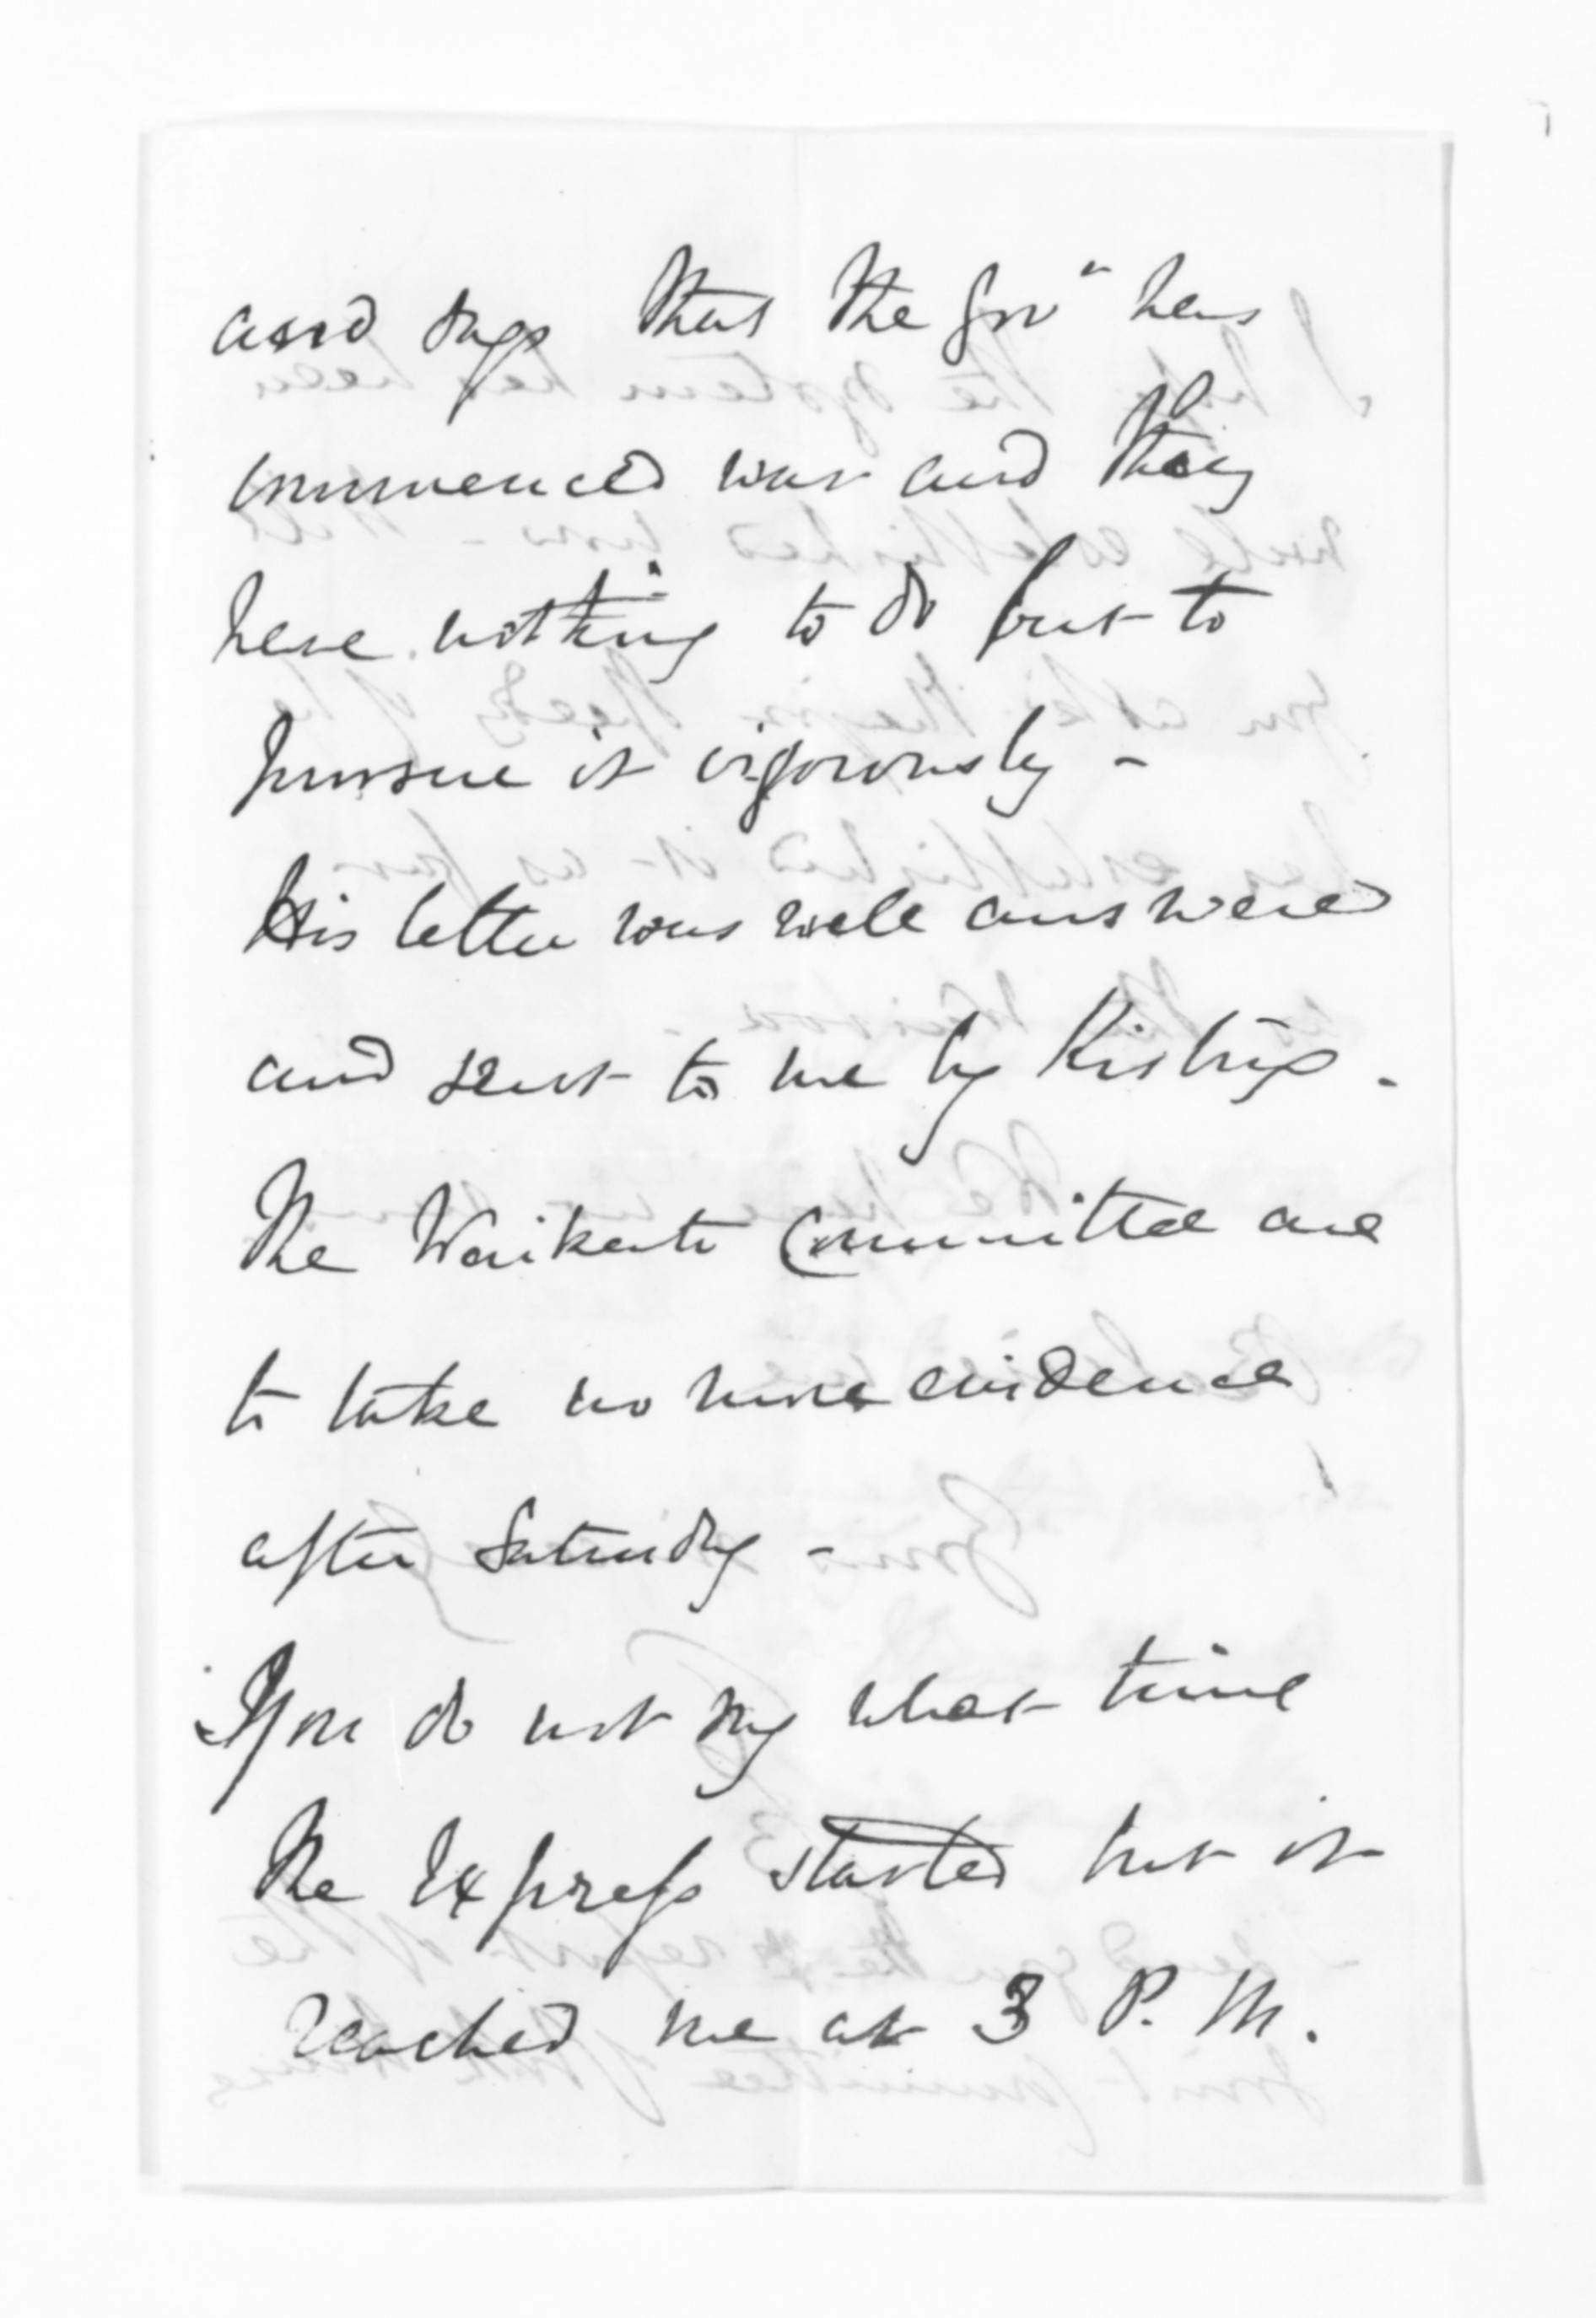 and says that the Govr has
commenced war and they
have nothing to do but to
pursue it vigorously -
His letter was well answered
and sent to me by
The Waikato Committee are
to take no more evidence
after Saturday -
You do not say what time
the Express started but it
reached me at 3 P.M.